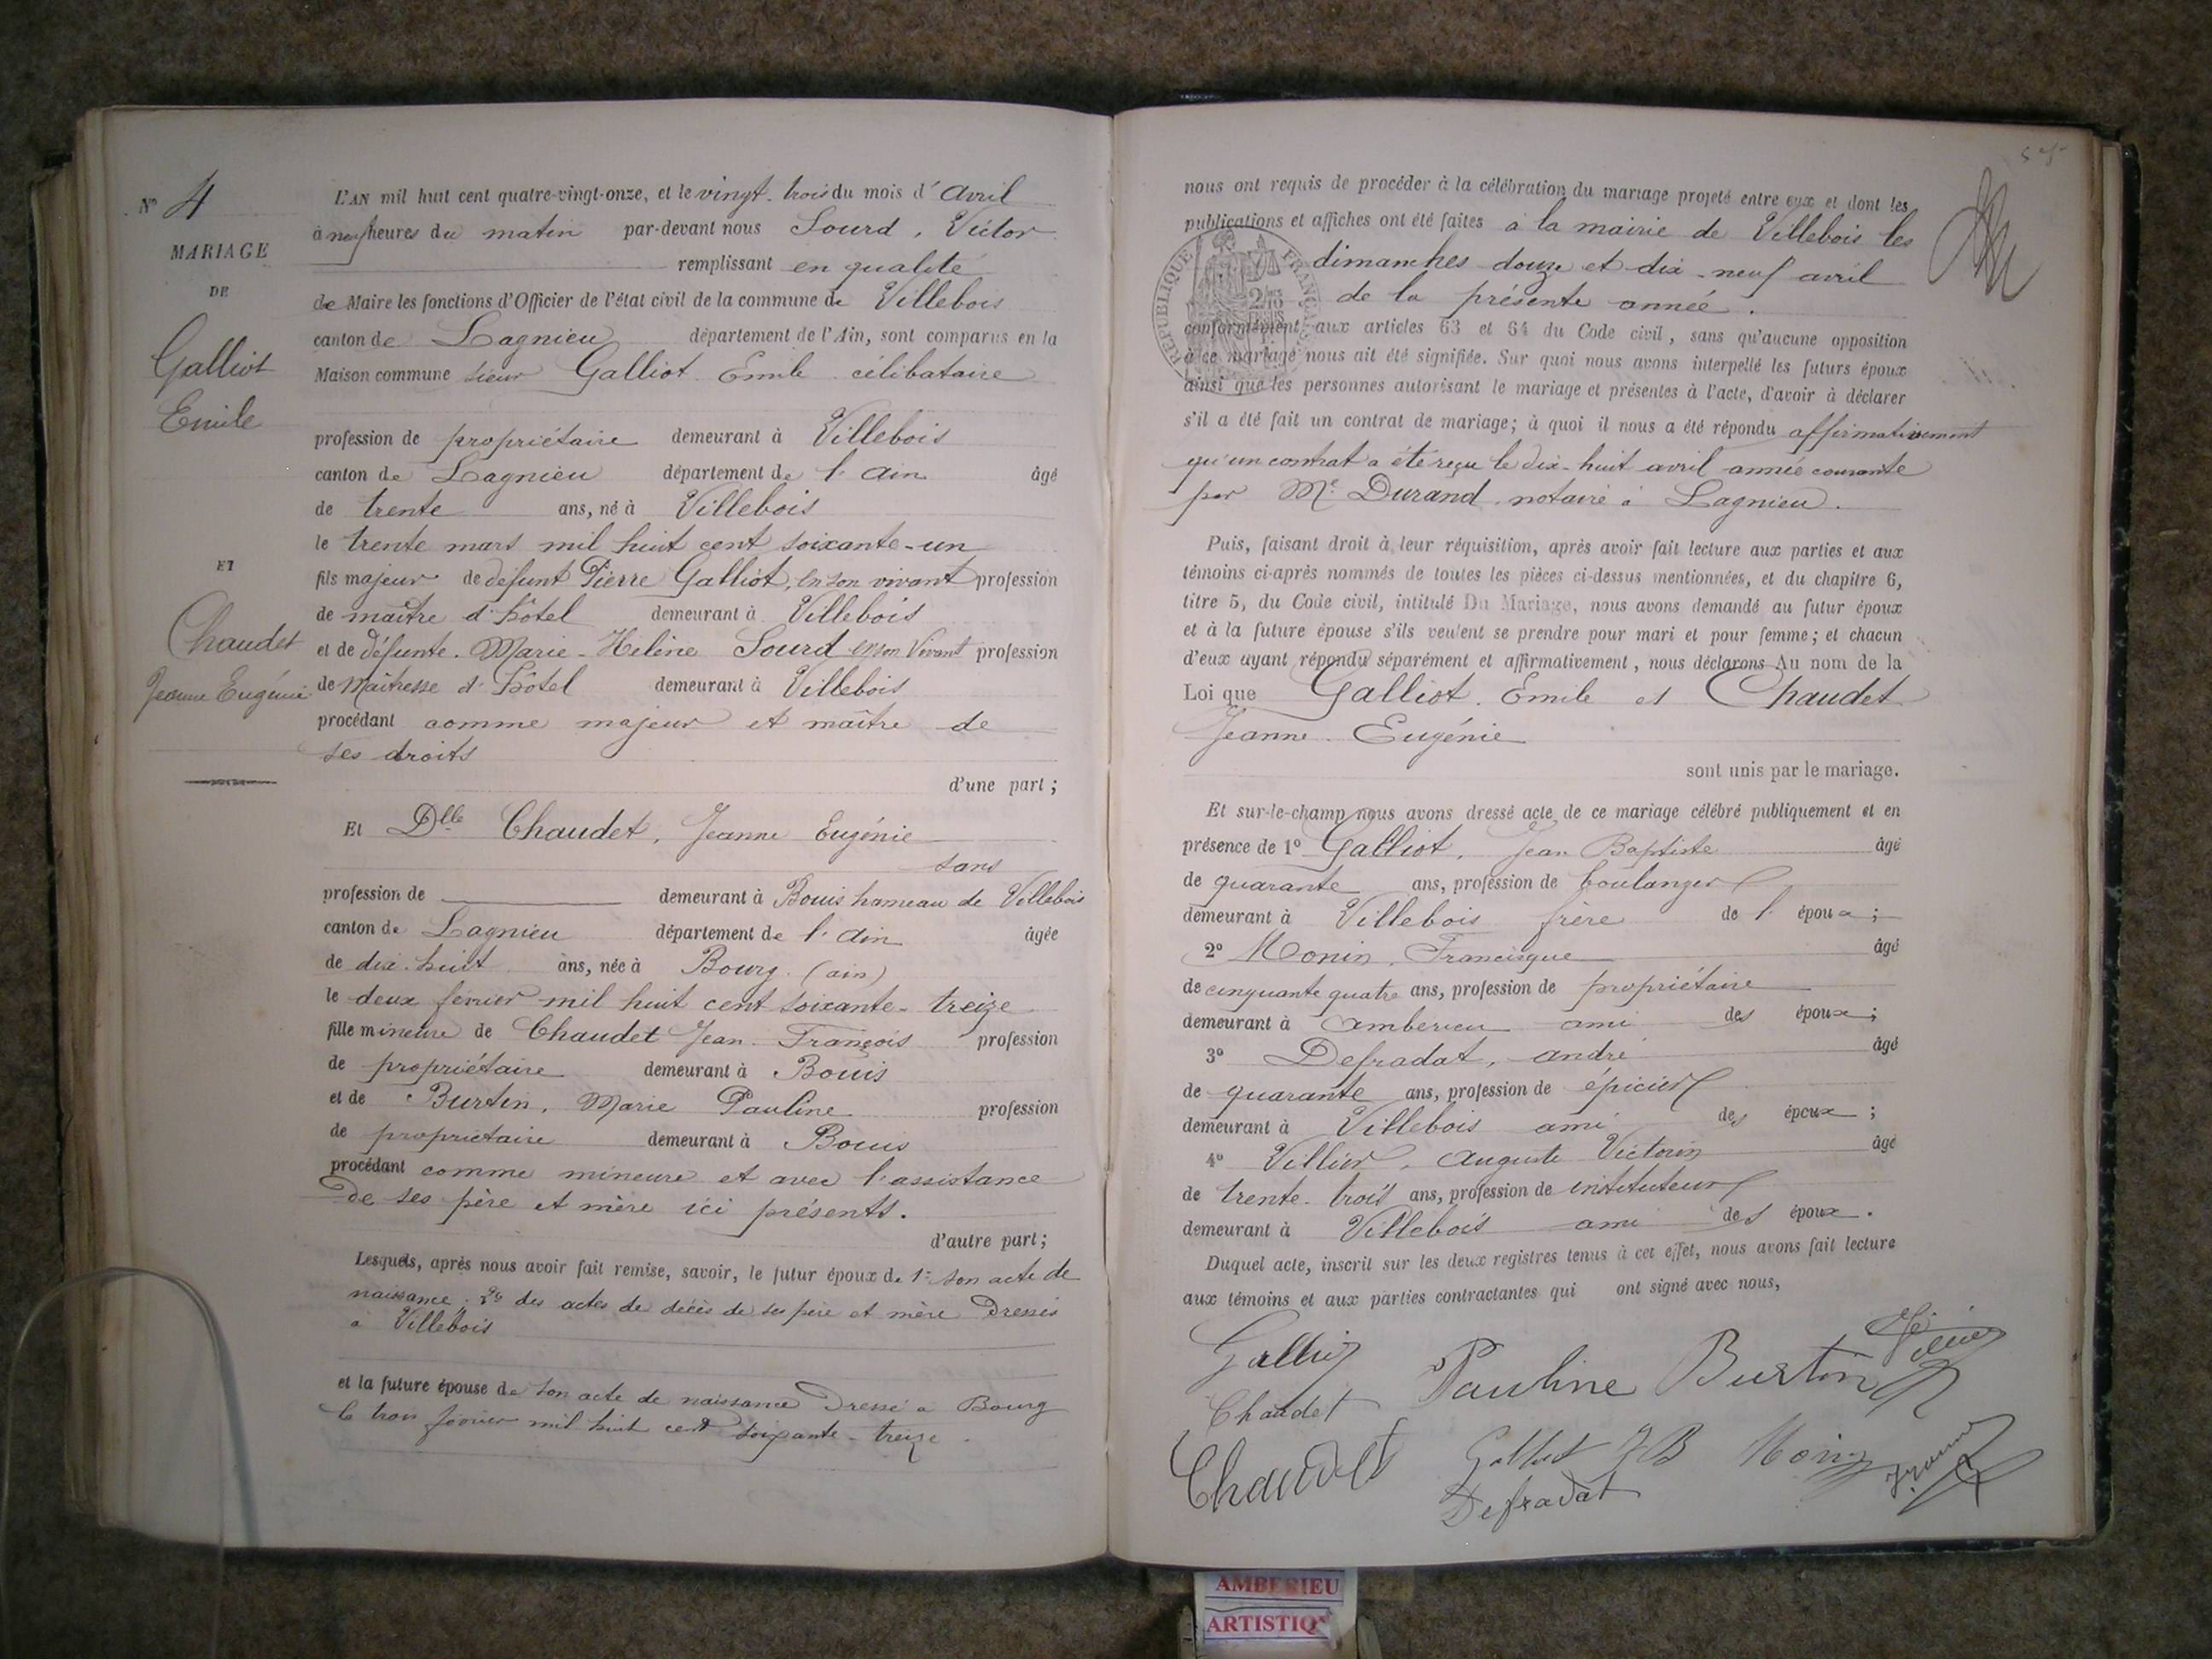 N° 4
MARIAGE
DE
Galliot
Emile
ET
Chaudet
Jeanne Eugénie
L'AN mil huit cent quatre-vingt-onze, et le vingt-trois du mois d'avril
à neuf heures du matin par-devant nous Sourd, Victor
remplissant en qualité
de Maire les fonctions d'Officier de l'état civil de la commune de Villebois
canton de Lagnieu département de l'Ain, sont comparus en la
Maison commune sieur Galliot Emile célibataire
profession de propriétaire demeurant à Villebois
canton de Lagnieu département de l'ain âgé
de trente ans, né à Villebois
le trente mars mil huit cent soixante-un
fils majeur de défunt Pierre Galliot, en son vivant profession
de maître d'hôtel demeurant à Villebois
et de défunte Marie-Helène Sourd en son vivant profession
de Maîtresse d'hôtel demeurant à Villebois
procédant comme majeur et maître de
ses droits
d'une part;
Et Dlle Chaudet, Jeanne Eugénie
sans
profession de demeurant à Bouis hameau de Villebois
canton de Lagnieu département de l'ain âgée
de dix-huit ans, née à Bourg (ain)
le deux février mil huit cent soixante-treize
fille mineure de Chaudet Jean François profession
de propriétaire demeurant à Bouis
et de Burtin, Marie Pauline profession
de propriétaire demeurant à Bouis
procédant comme mineure et avec l'assistance
De ses père et mère ici présents.
d'autre part;
Lesquels, après nous avoir fait remise, savoir, le futur époux de 1° son acte de
naissance; 2° des actes de décès de ses père et mère Dressés
à Villebois
et la future épouse de son acte de naissance Dressé à Bourg
le trois février mil huit cent soixante-treize.
nous ont requis de procéder à la célébration du mariage projeté entre eux et dont les
publications et affiches ont été faites à la mairie de Villebois les
dimanches douze et dix-neuf avril
de la présente année.
REPUBLIQUE FRANÇAISE
conformément aux articles 63 et 64 du Code civil, sans qu'aucune opposition
à ce mariage nous ait été signifiée. Sur quoi nous avons interpellé les futurs époux
ainsi que les personnes autorisant le mariage et présentes à l'acte, d'avoir à déclarer
s'il a été fait un contrat de mariage; à quoi il nous a été répondu affirmativement
qu'un contrat a été reçu le dix-huit avril année courante
par Me Durand notaire à Lagnieu.
Puis, faisant droit à leur réquisition, après avoir fait lecture aux parties et aux
témoins ci-après nommés de toutes les pièces ci-dessus mentionnées, et du chapitre 6,
titre 5, du Code civil, intitulé Du Mariage, nous avons demandé au futur époux
et à la future épouse s'ils veulent se prendre pour mari et pour femme; et chacun
d'eux ayant répondu séparément et affirmativement, nous déclarons Au nom de la
Loi que Galliot Emile et Chaudet
Jeanne Eugénie
sont unis par le mariage.
Et sur-le-champ nous avons dressé acte de ce mariage célébré publiquement et en
présence de 1° Galliot, Jean Baptiste âgé
de quarante ans, profession de boulanger
demeurant à Villebois frère de l'époux;
2° Monin, Francisque âgé
de cinquante quatre ans, profession de propriétaire
demeurant à Amberieu ami des époux;
3° Defradat, andré âgé
de quarante ans, profession de épicier
demeurant à Villebois ami des époux;
4° Villier, Auguste Victorin âgé
de trente-trois ans, profession de instituteur
demeurant à Villebois ami des époux.
Duquel acte, inscrit sur les deux registres tenus à cet effet, nous avons fait lecture
aux témoins et aux parties contractantes qui ont signé avec nous,
Galliot
Pauline Burtin
Chaudet
Chaudet
Galliot JB Monin
Defradat
AMBERIEU
ARTISTIQ